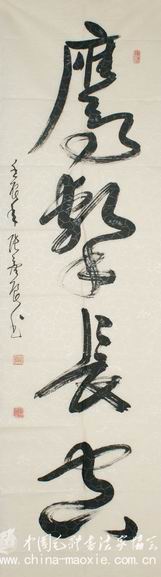 鷹擊長空
壬辰年
中国毛体书法家协会
www.china-maoxie.com.cn